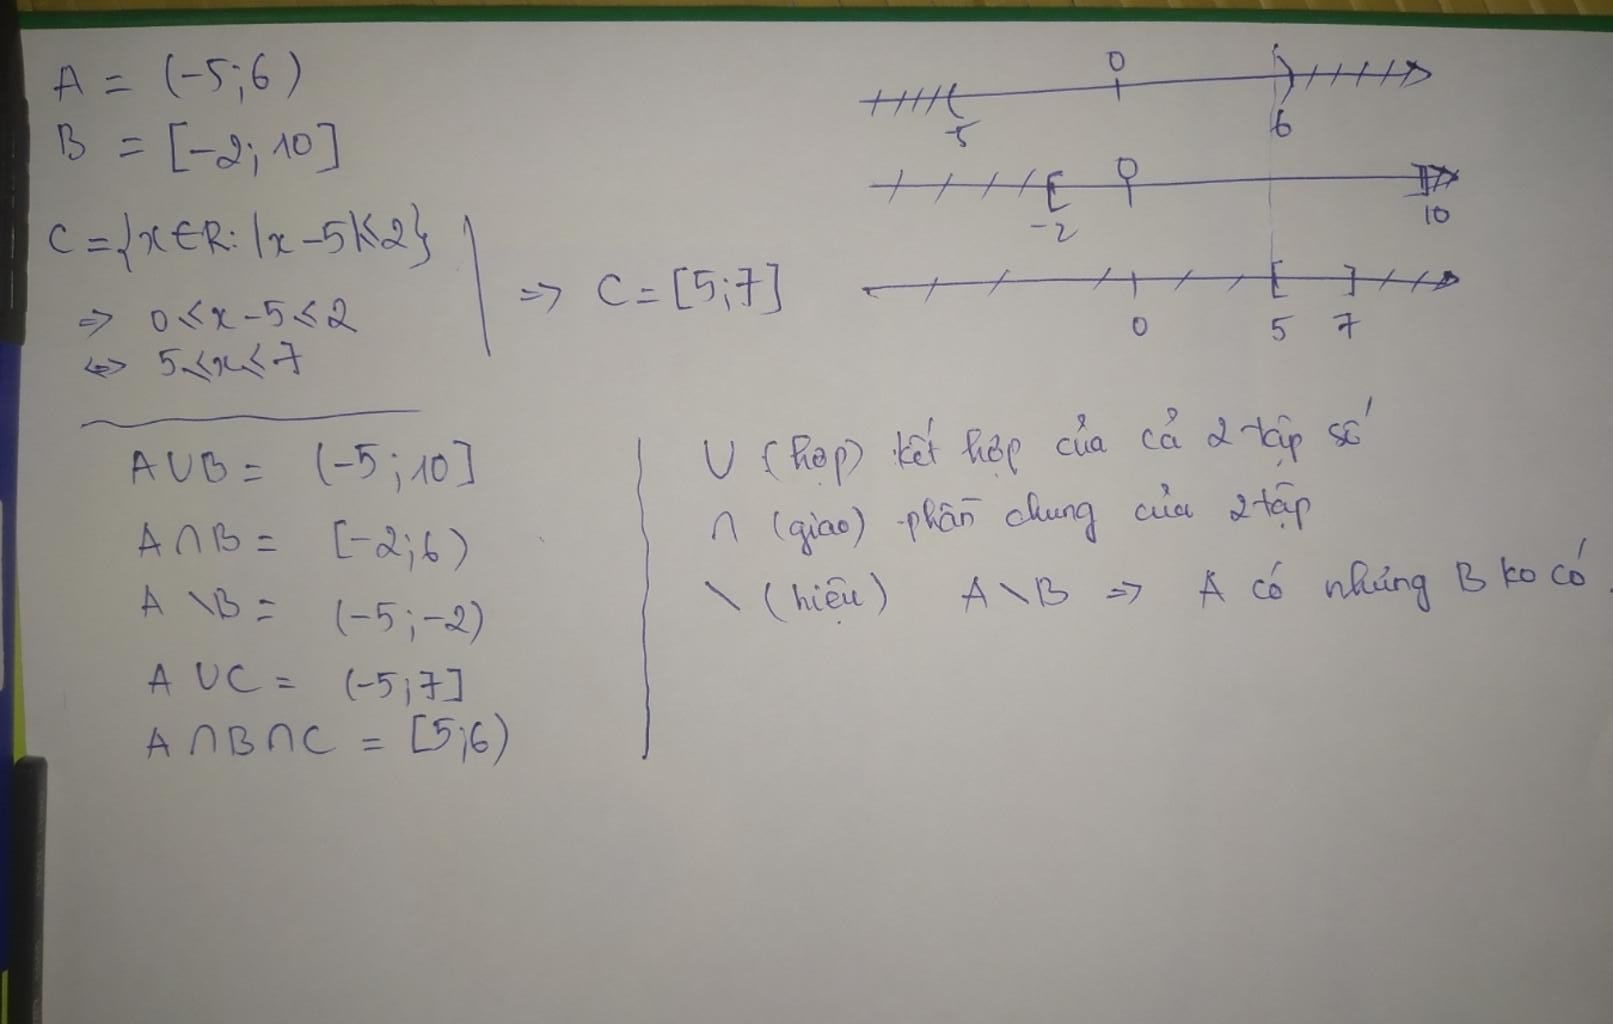 A = (-5;6)
B = [-2; 10]
C = {x ∈ R: |x - 5| ≤ 2}
=> 0 ≤ x - 5 ≤ 2
<=> 5 ≤ x ≤ 7
=> C = [5;7]
0
-5 6
0
-2 10
0 5 7
A ∪ B = (-5; 10]
A ∩ B = [-2; 6)
A \ B = (-5; -2)
A ∪ C = (-5; 7]
A ∩ B ∩ C = [5;6)
∪ (hợp) kết hợp của cả 2 tập số
∩ (giao) phần chung của 2 tập
\ (hiệu) A \ B => A có nhưng B ko có.